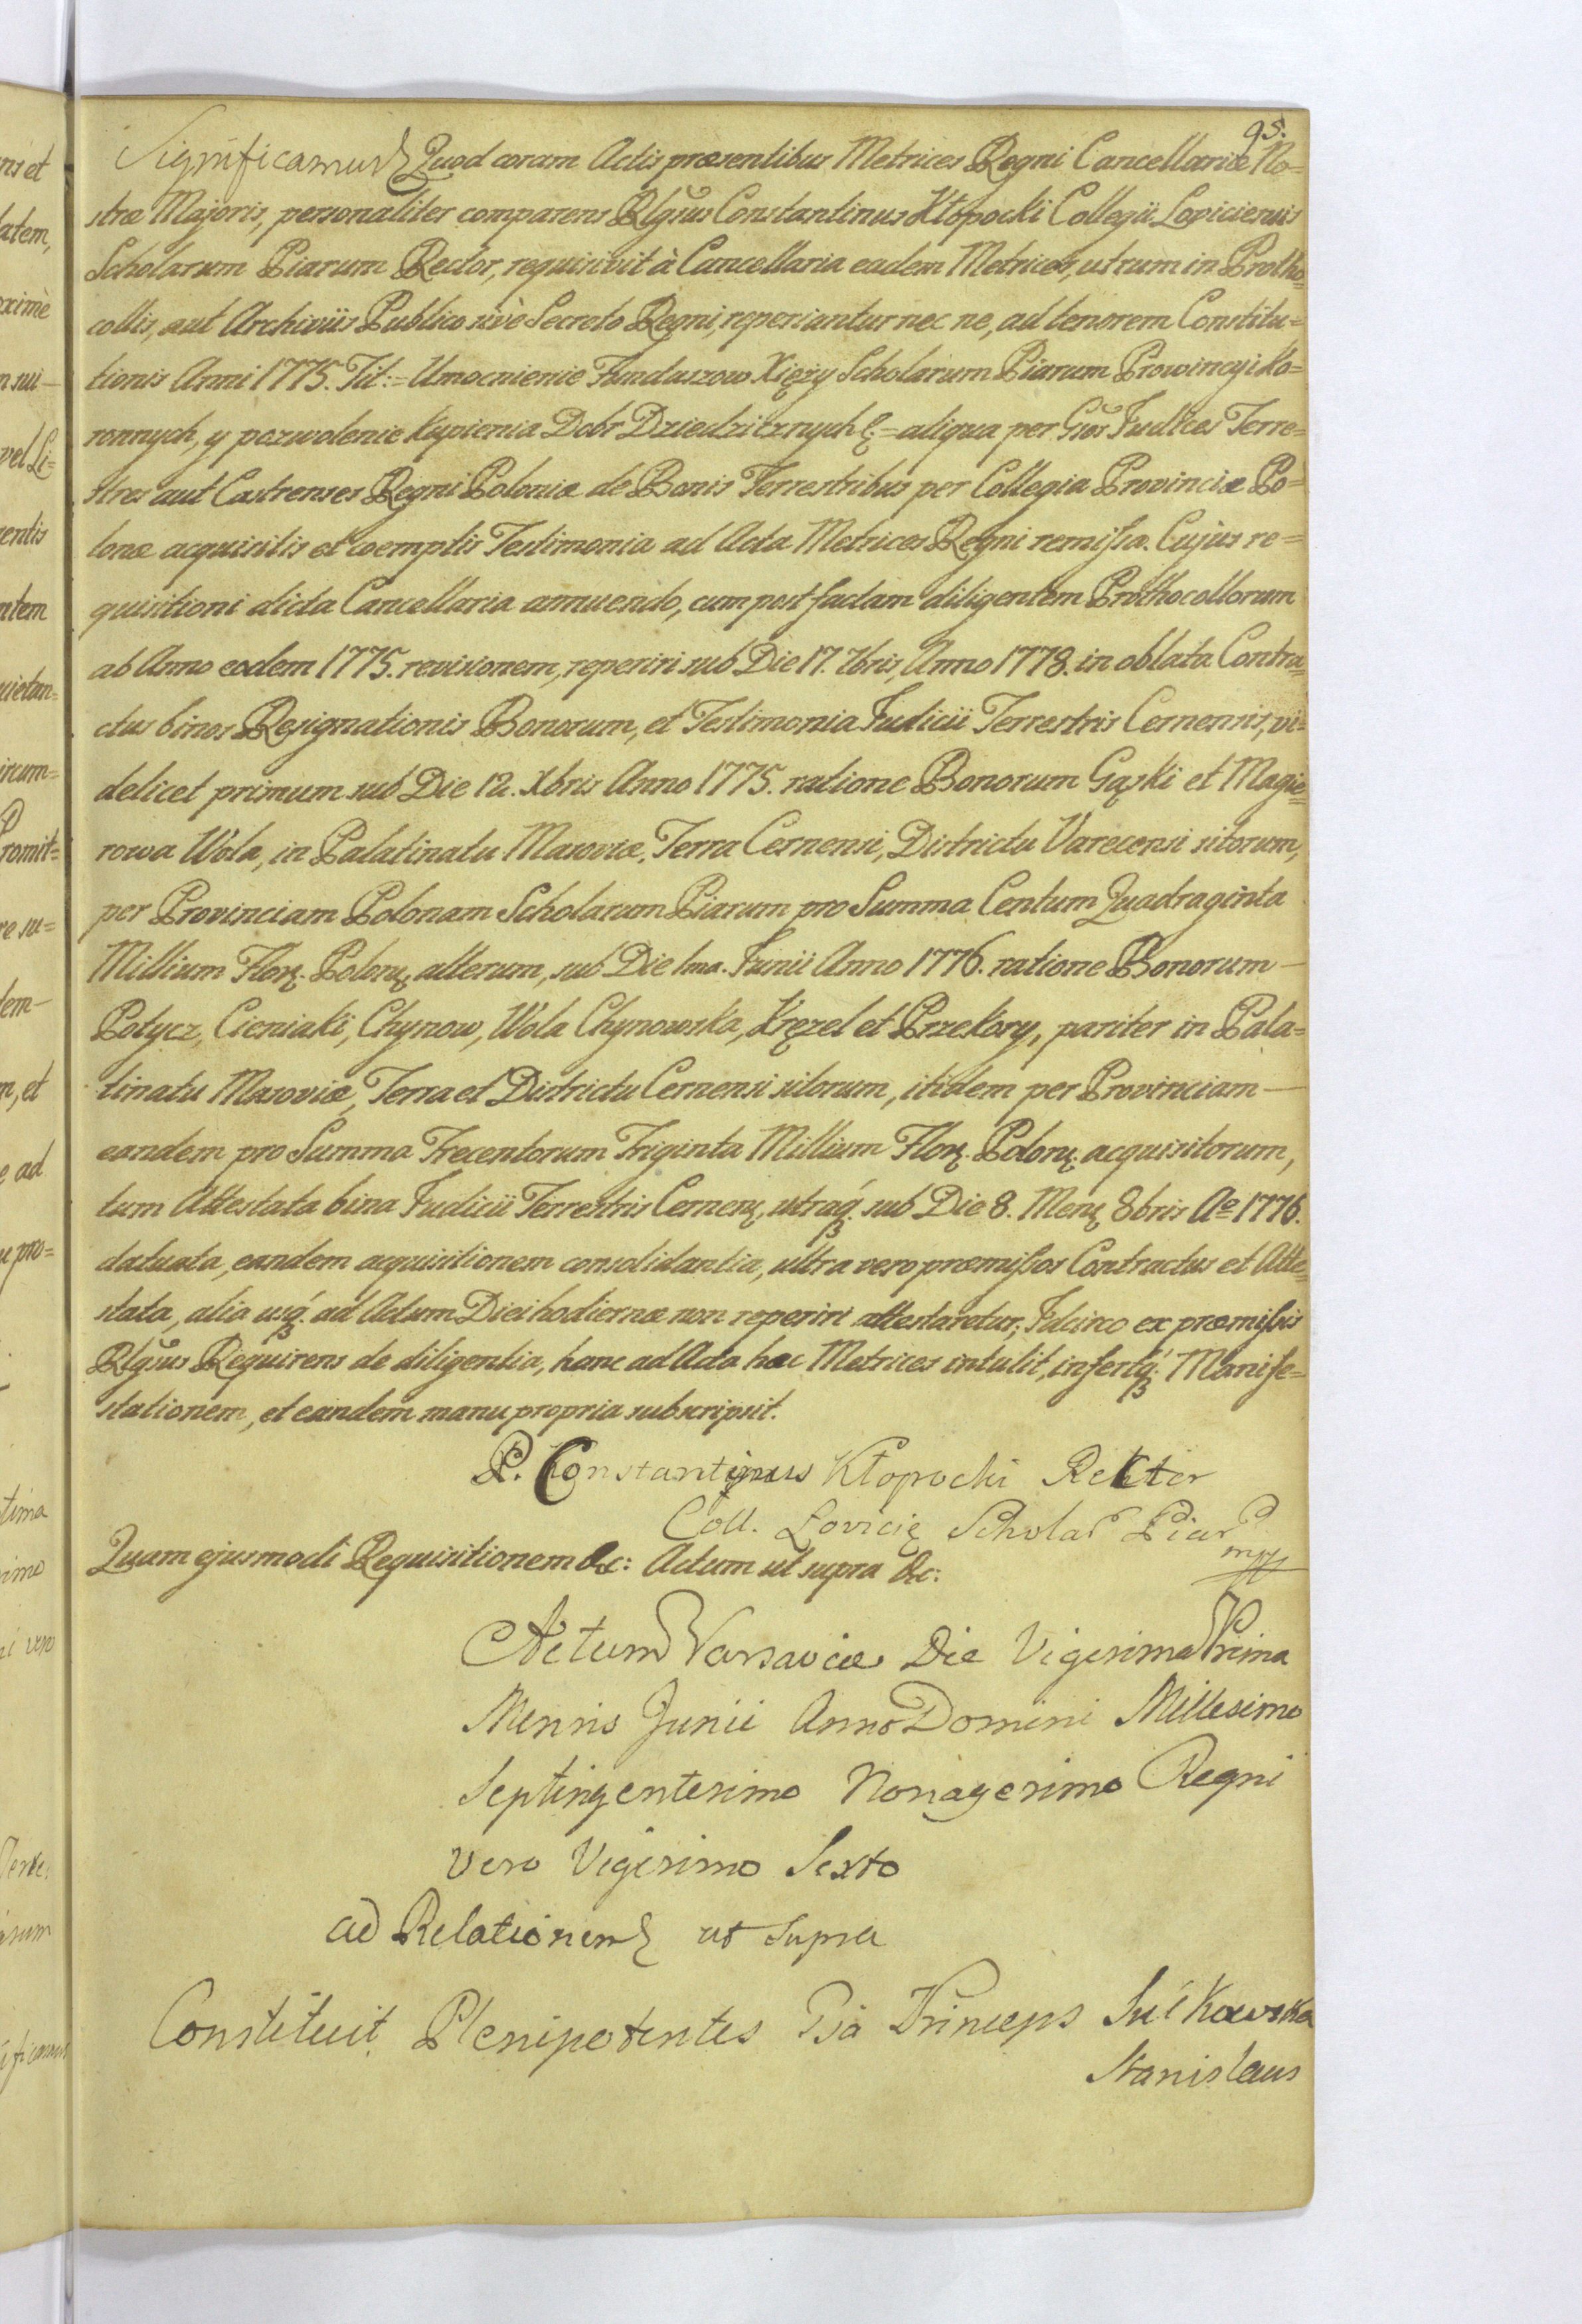 95.
Significamus Quod coram Actis præsentibus Metrices Regni Cancellariæ No=
stræ Majoris, personaliter comparens Rlgsus Constantinus Kłopocki Collegii Loviciensis
Scholarum Piarum Rector, requisivit à Cancellaria eadem Metrices, utrum in Protho=
collis, aut Archiviis Publico sivè Secreto Regni, reperiantur nec ne, ad tenorem Constitu=
tionis Anni 1775. Tit:= Umocnienie Funduszow Xięży Scholarum Piarum Prowincyi Ko=
ronnych, y pozwolenie kupienia Dobr Dziedzicznych &.= aliqua per Gsos Judices Terre=
stres aut Castrenses Regni Poloniæ de Bonis Terrestribus per Collegia Provinciæ Po=
lonæ acquisitis et coemptis Testimonia ad Acta Metrices Regni remissa. Cujus re=
quisitioni dicta Cancellaria annuendo, cum post factam diligentem Prothocollorum
ab Anno eodem 1775. revisionem, reperiri sub Die 17. 7bris, Anno 1778. in oblata Contra=
ctus binos Resignationis Bonorum, et Testimonia Judicii Terrestris Cernensis, vi=
delicet primum sub Die 12. Xbris Anno 1775. ratione Bonorum Gąski et Magie=
rowa Wola, in Palatinatu Masoviæ, Terra Cernensi, Districtu Varecensi sitorum,
per Provinciam Polonam Scholarum Piarum pro Summa Centum Quadraginta
Millium Flor. Polor. alterum, sub Die 1ma. Junii Anno 1776. ratione Bonorum —
Potycz, Cieniaki, Chynow, Wola Chynowska, Kręzel et Przekory, pariter in Pala=
tinatu Masoviæ, Terra et Districtu Cernensi sitorum, itidem per Provinciam —
eandem pro Summa Trecentorum Triginta Millium Flor. Polor. acquisitorum,
tum Attestata bina Judicii Terrestris Cernen, utraq. sub Die 8. Mens 8bris Ao 1776.
datuata, eandem acquisitionem consolidantia, ultra vero præmissos Contractus et Atte=
stata, alia usq. ad Actum Diei hodiernæ non reperiri attestaretur; Idcirco ex præmissis
Rlgsus Requirens de diligentia, hanc ad Acta hæc Metrices intulit, infertq. Manife=
stationem, et eandem manu propria subscripsit.
P. Constantinus Kłopocki Rektor
Coll. Lovicię Scholar Piar
mp
Quam ejusmodi Requisitionem &c: Actum ut supra &c:
Actum Varsaviæ Die Vigesima Prima
Mensis Junii Anno Domini Millesimo
Septingentesimo Nonagesimo Regni
vero Vigesimo Sexto
ad Relationem ut supra
Constituit Plenipotentes Princeps Sułkowska
Stanislaus